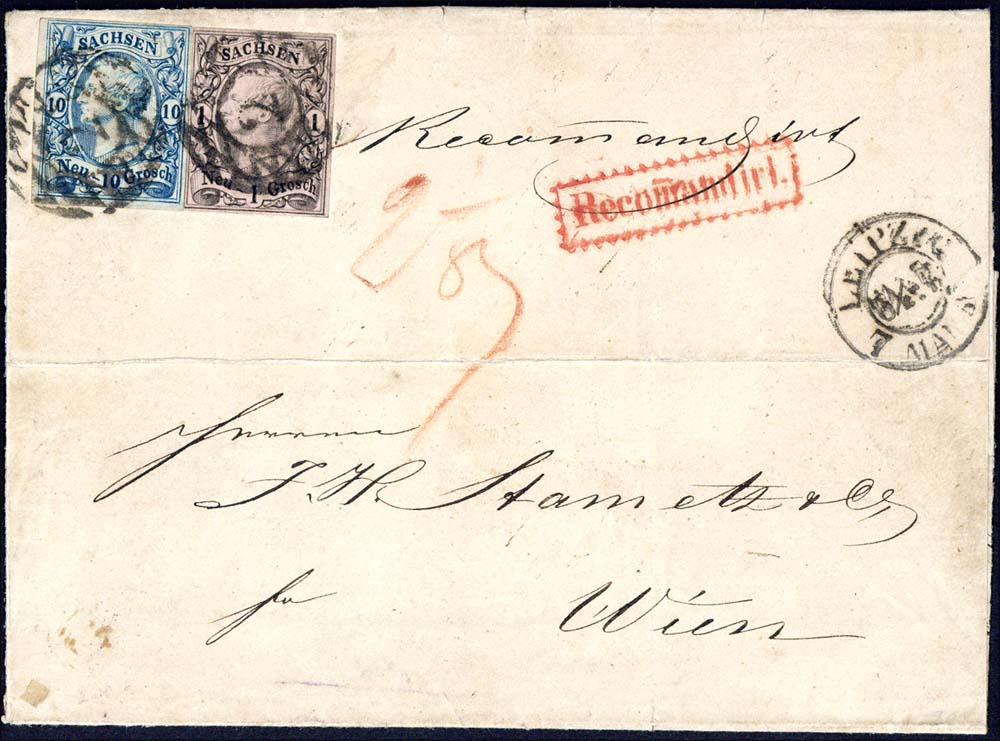 SACHSEN
10 10
Neu-10 Grosch
SACHSEN
1 1
Neu- 1 Grosch
Recom̄andirt
Recom̄andirt.
LEIPZIG
7 MAI
Herren
J. H. Stametz & Co,
Wien